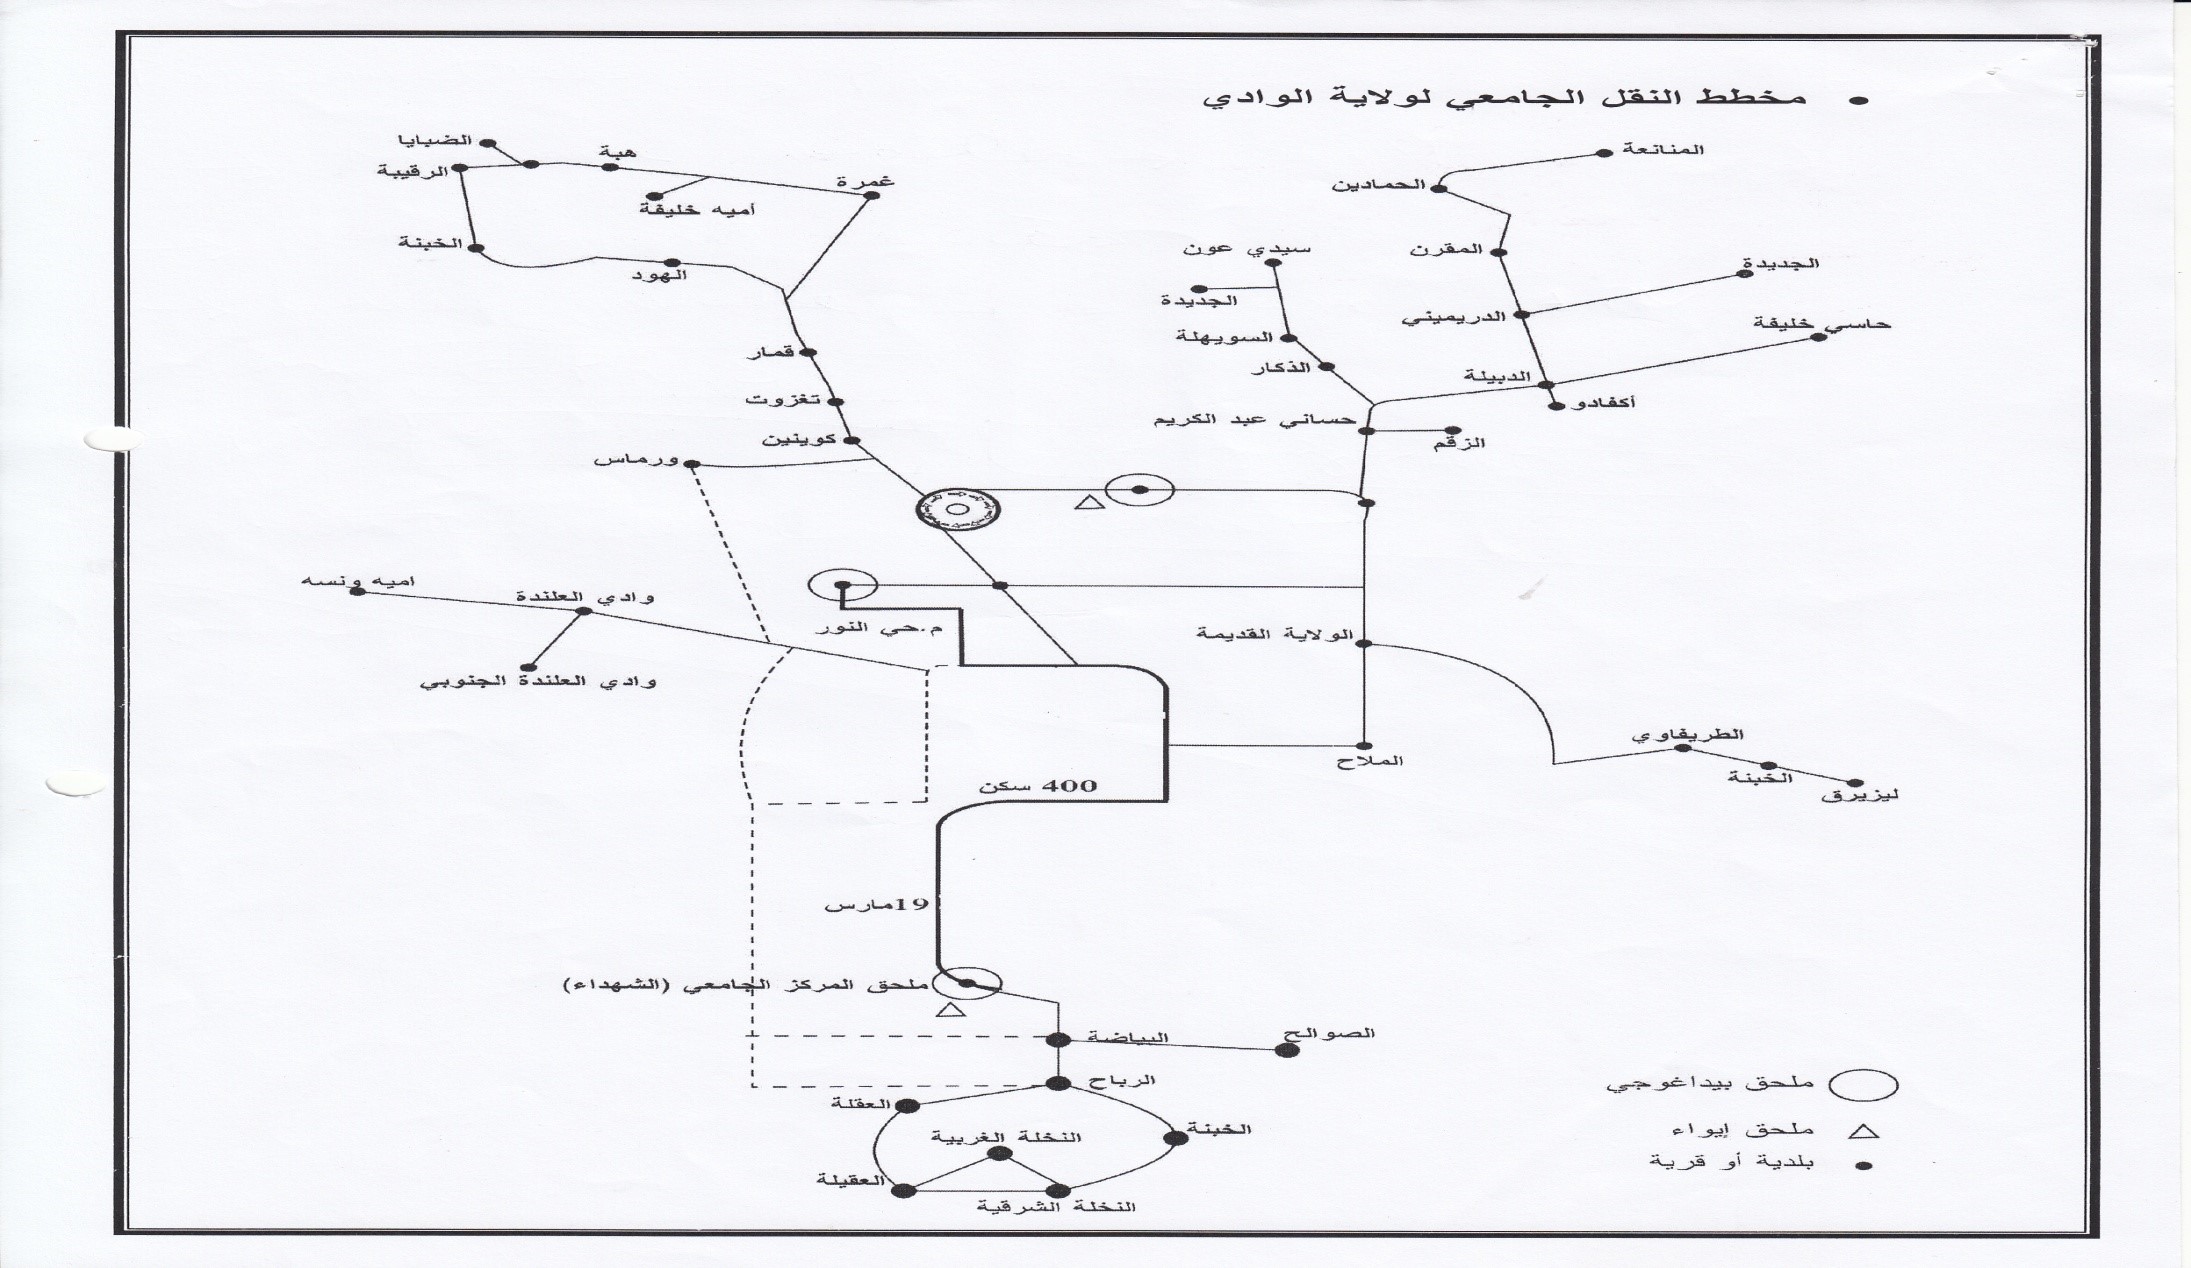 • مخطط النقل الجامعي لولاية الوادي
الضبايا
هبة
الرقيبة
غمرة
أميه خليفة
الخبنة
الهود
قمار
تغزوت
كوينين
ورماس
المنانعة
الحمادين
المقرن
سيدي عون
الجديدة
الجديدة
الدريميني
حاسي خليفة
السويهلة
الذكار
الدبيلة
أكفادو
حساني عبد الكريم
الزقم
اميه ونسه
وادي العلندة
م.حي النور
الولاية القديمة
وادي العلندة الجنوبي
الطريفاوي
الملاح
الخبنة
ليزيرق
400 سكن
19مارس
ملحق المركز الجامعي (الشهداء)
البياضة
الصوالح
الرباح
العقلة
الخبنة
النخلة الغربية
العقيلة
النخلة الشرقية
ملحق بيداغوجي
ملحق إيواء
بلدية أو قرية